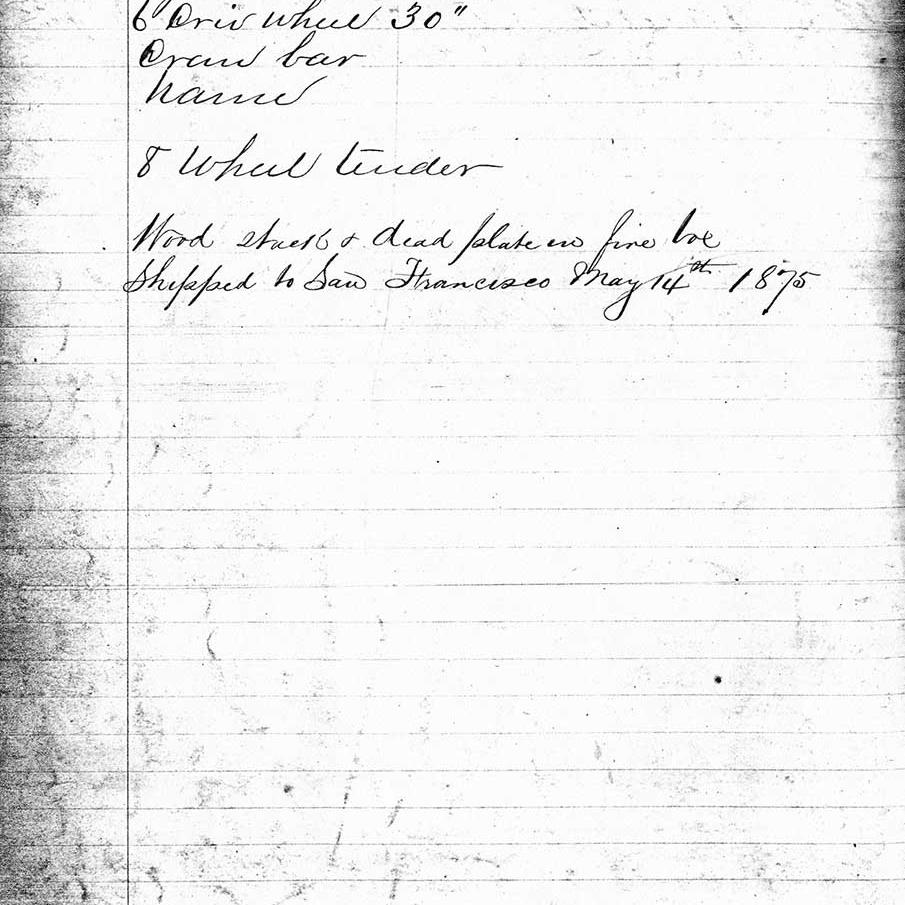 6 Driv wheel 30"
Draw bar
Name
8 Wheel tender
Wood stack & dead plate in fire box
Shipped to San Francisco May 14th 1875